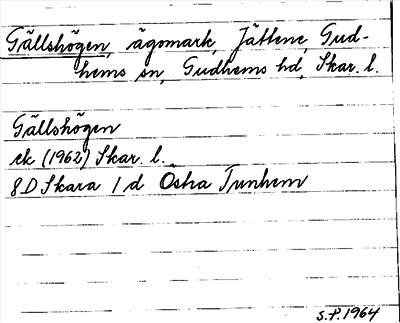 Gällshögen, ägomark, Jättene, Gud-
hems sn, Gudhems hd, Skar. l.
Gällshögen
ek (1962) Skar. l.
8D Skara 1 d Östra Tunhem
S.P. 1964